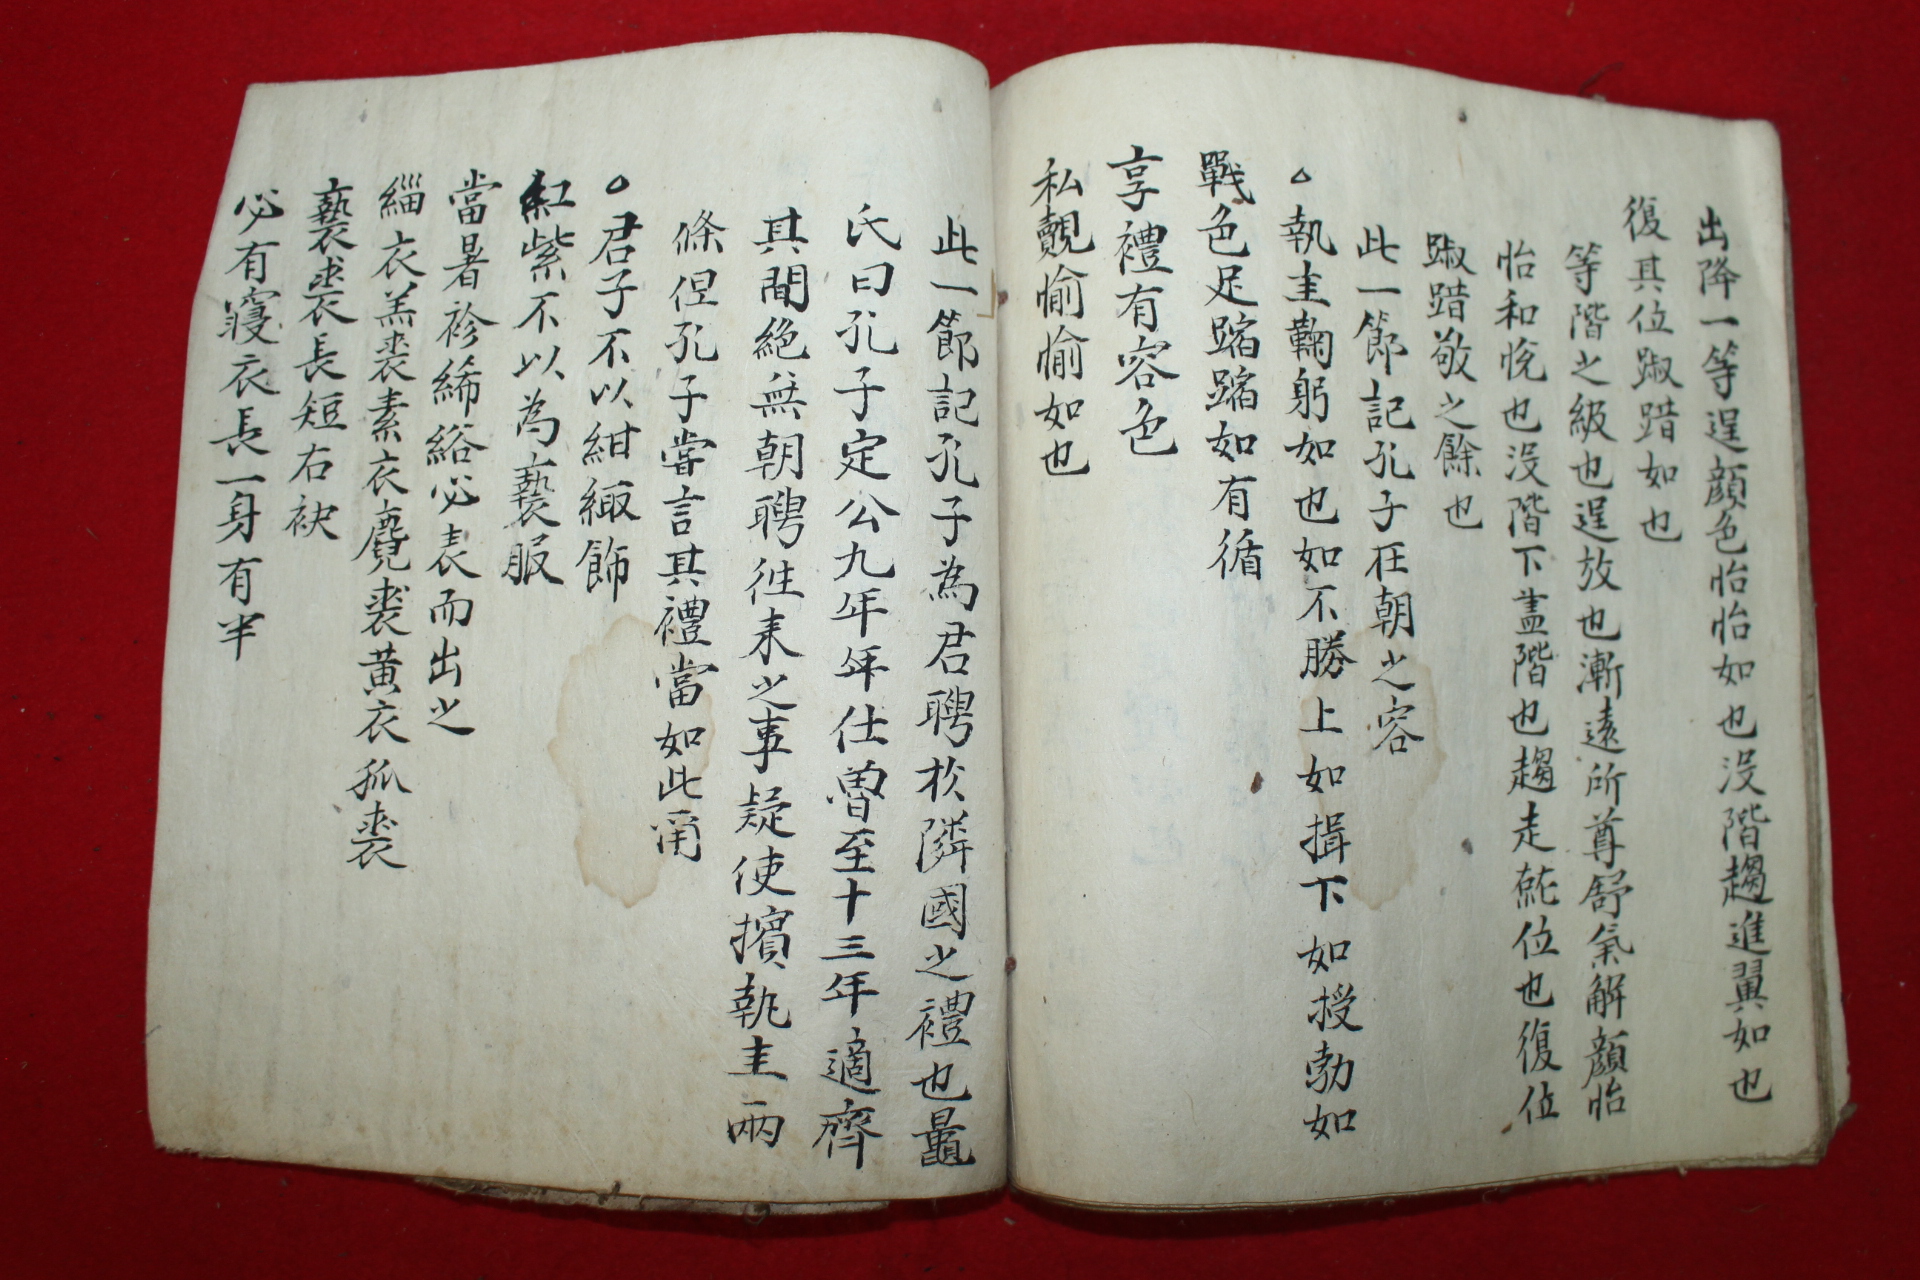 出降一等逞顔色怡怡如也沒階趨進翼如也
復其位踧踖如也
等階之級也逞放也漸遠所尊舒氣解顔怡
怡和悅也沒階下盡階也趨走就位也復位
踧踖敬之餘也
此一節記孔子在朝之容
執圭鞠躬如也如不勝上如揖下如授勃如
戰色足蹜蹜如有循
享禮有容色
私覿愉愉如也
此一節記孔子為君聘於隣國之禮也鼂
氏曰孔子定公九年年仕魯至十三年適齊
其間絶無朝聘徃来之事疑使擯執圭兩
條但孔子甞言其禮當如此甭
君子不以紺緅飾
紅紫不以為褻服
當暑袗絺綌必表而出之
緇衣羔裘素衣麑裘黄衣狐裘
褻裘長短右袂
必有寢衣長一身有半